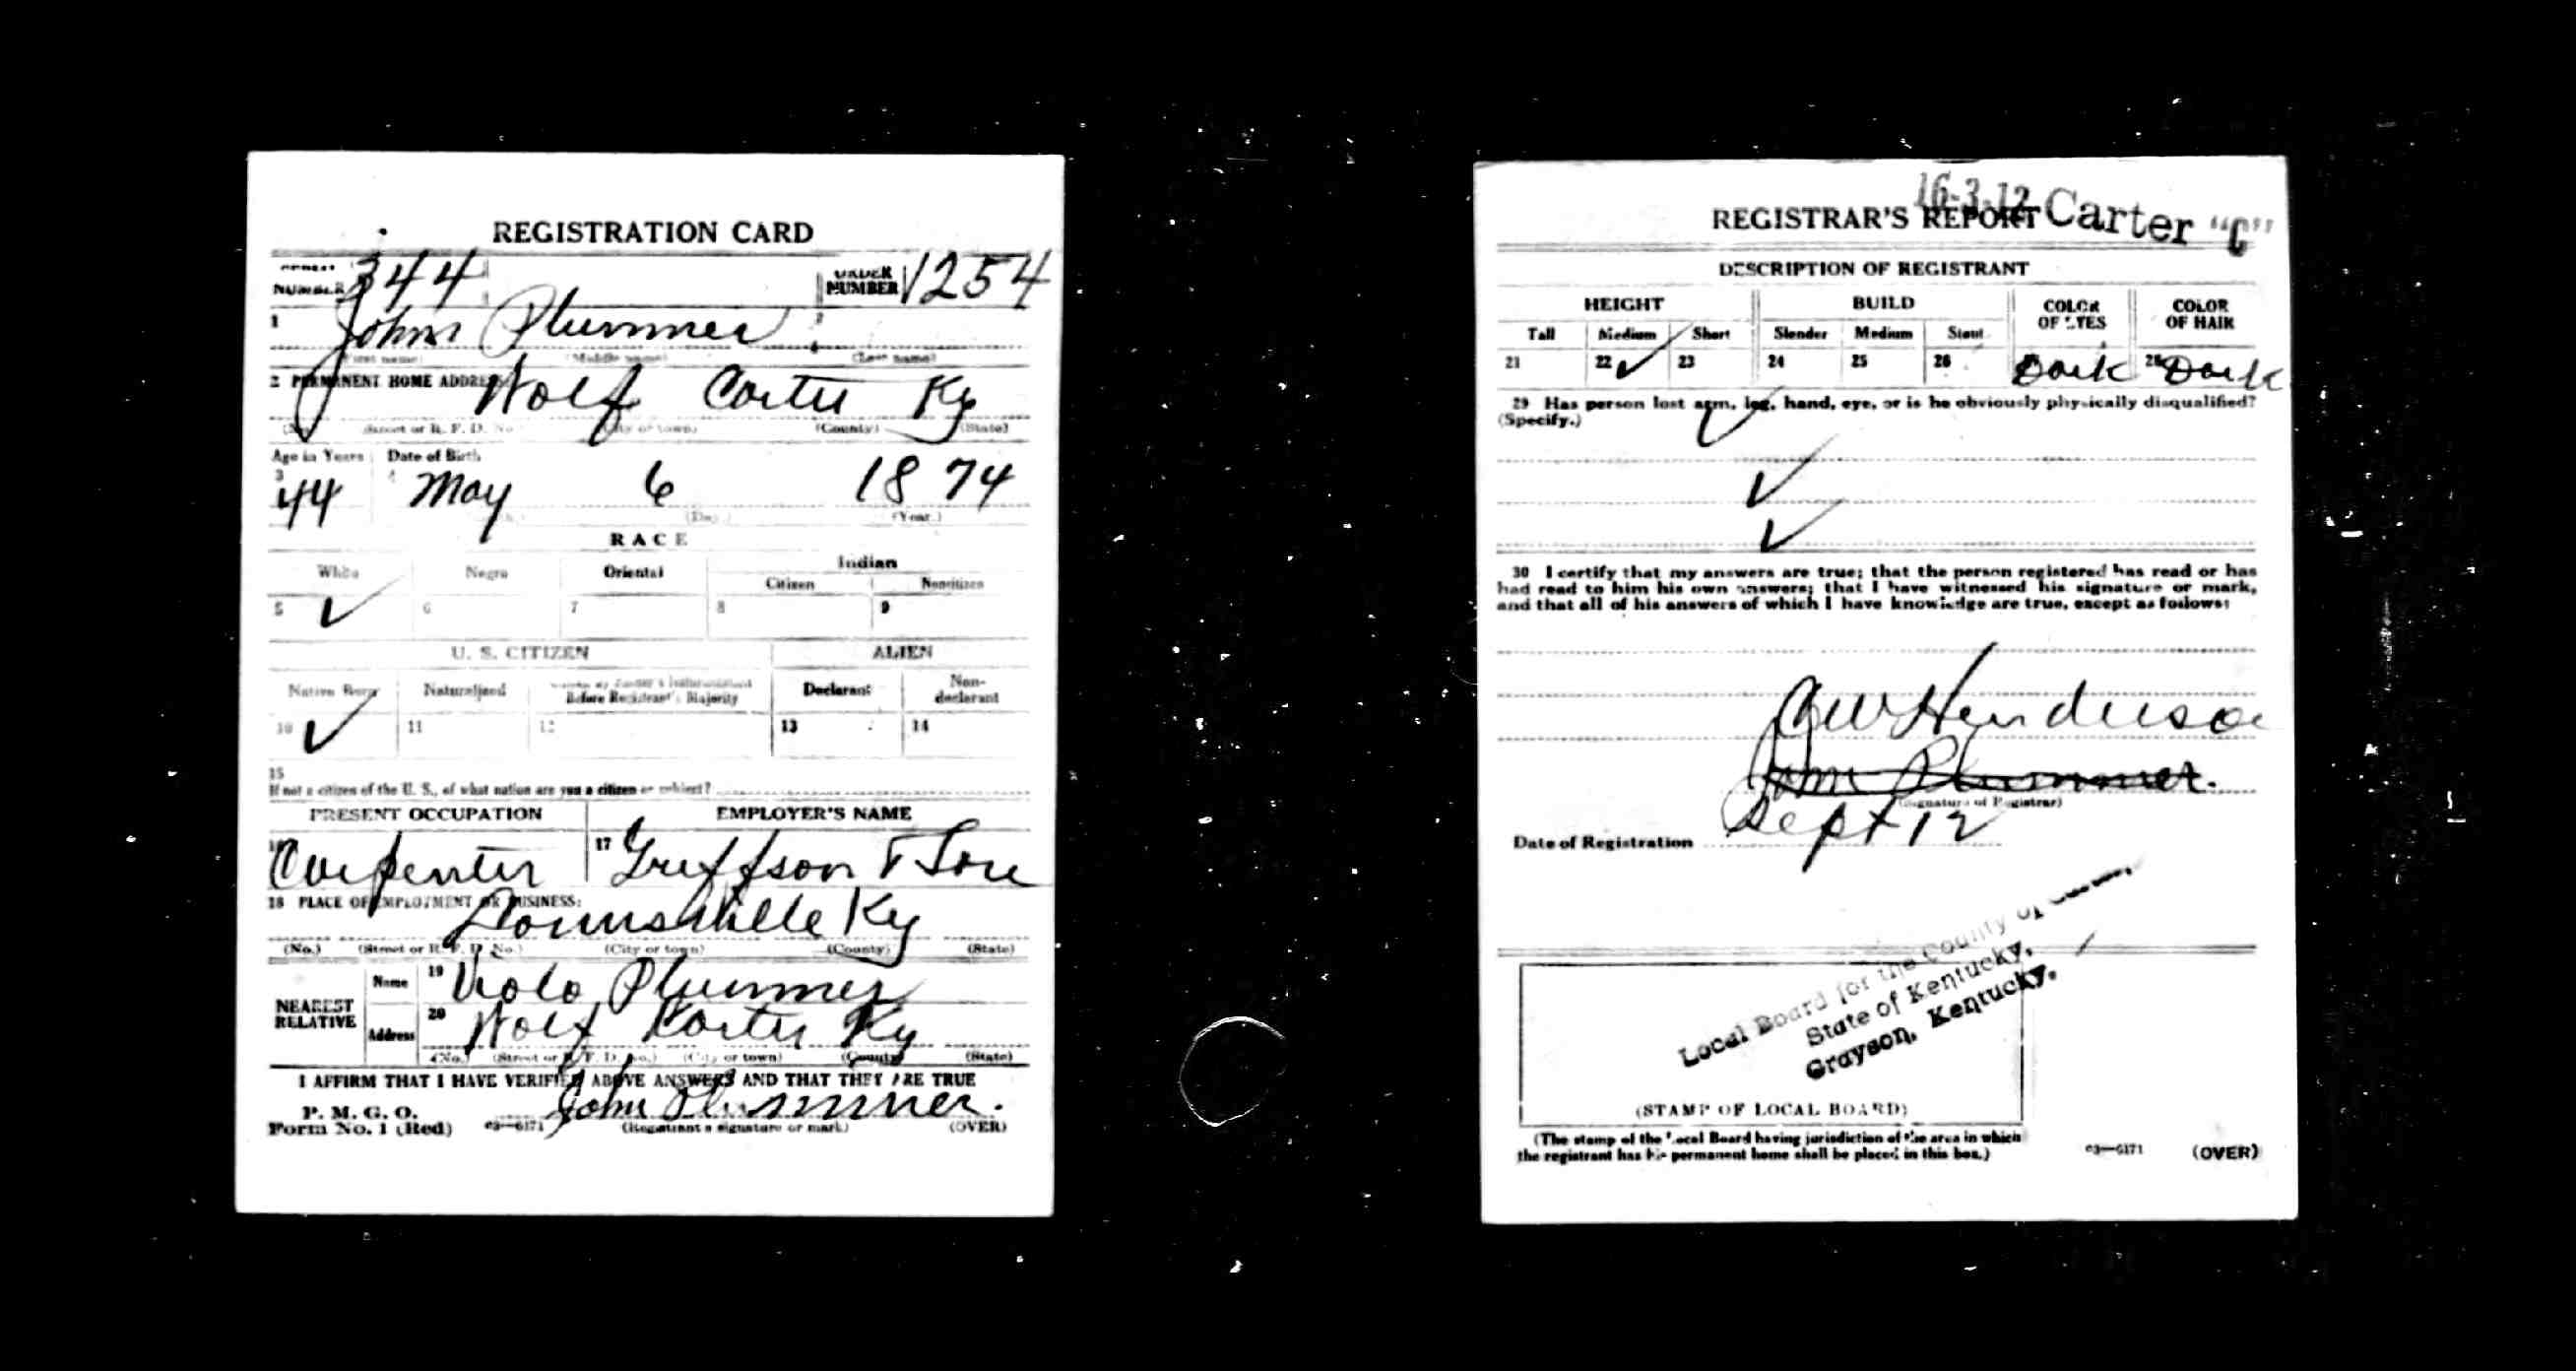 REGISTRATION CARD
SERIAL NUMBER 344 ORDER NUMBER 1254
1 John Plummer
(First name) (Middle name) (Last name)
2 PERMANENT HOME ADDRESS: Wolf Carter Ky
(No.) (Street or R. F. D. No.) (City or town) (County) (State)
Age in Years Date of Birth
3 44 4 May 6 1874
(Day.) (Year.)
RACE
White Negro Oriental Indian
Citizen Noncitizen
5 ✓ 6 7 8 9
U. S. CITIZEN ALIEN
Native Born Naturalized Citizen by Father's Naturalization Before Registrant's Majority Declarant Non-declarant
10 ✓ 11 12 13 14
15
If not a citizen of the U. S., of what nation are you a citizen or subject?
PRESENT OCCUPATION EMPLOYER'S NAME
16 Carpenter 17
18 PLACE OF EMPLOYMENT OR BUSINESS:
Ky
(No.) (Street or R. F. D. No.) (City or town) (County) (State)
NEAREST RELATIVE
Name 19 Viola Plummer
Address 20 Wolf Carter Ky
(No.) (Street or R. F. D. No.) (City or town) (County) (State)
I AFFIRM THAT I HAVE VERIFIED ABOVE ANSWERS AND THAT THEY ARE TRUE
P. M. G. O.
Form No. 1 (Red) 03—6171 John Plummer.
(Registrant's signature or mark) (OVER)
16-3-12 Carter "C"
REGISTRAR'S REPORT
DESCRIPTION OF REGISTRANT
HEIGHT BUILD COLOR OF EYES COLOR OF HAIR
Tall Medium Short Slender Medium Stout
21 22 ✓ 23 24 25 26 Dark 28 Dark
29 Has person lost arm, leg, hand, eye, or is he obviously physically disqualified?
(Specify.) ✓
✓
✓
30 I certify that my answers are true; that the person registered has read or has
had read to him his own answers; that I have witnessed his signature or mark,
and that all of his answers of which I have knowledge are true, except as follows:
Henderson
John Plummer.
(Signature of Registrar)
Date of Registration Sept 12
Local Board for the County of Carter,
State of Kentucky,
Grayson, Kentucky.
(STAMP OF LOCAL BOARD)
(The stamp of the Local Board having jurisdiction of the area in which
the registrant has his permanent home shall be placed in this box.)
03—6171 (OVER)